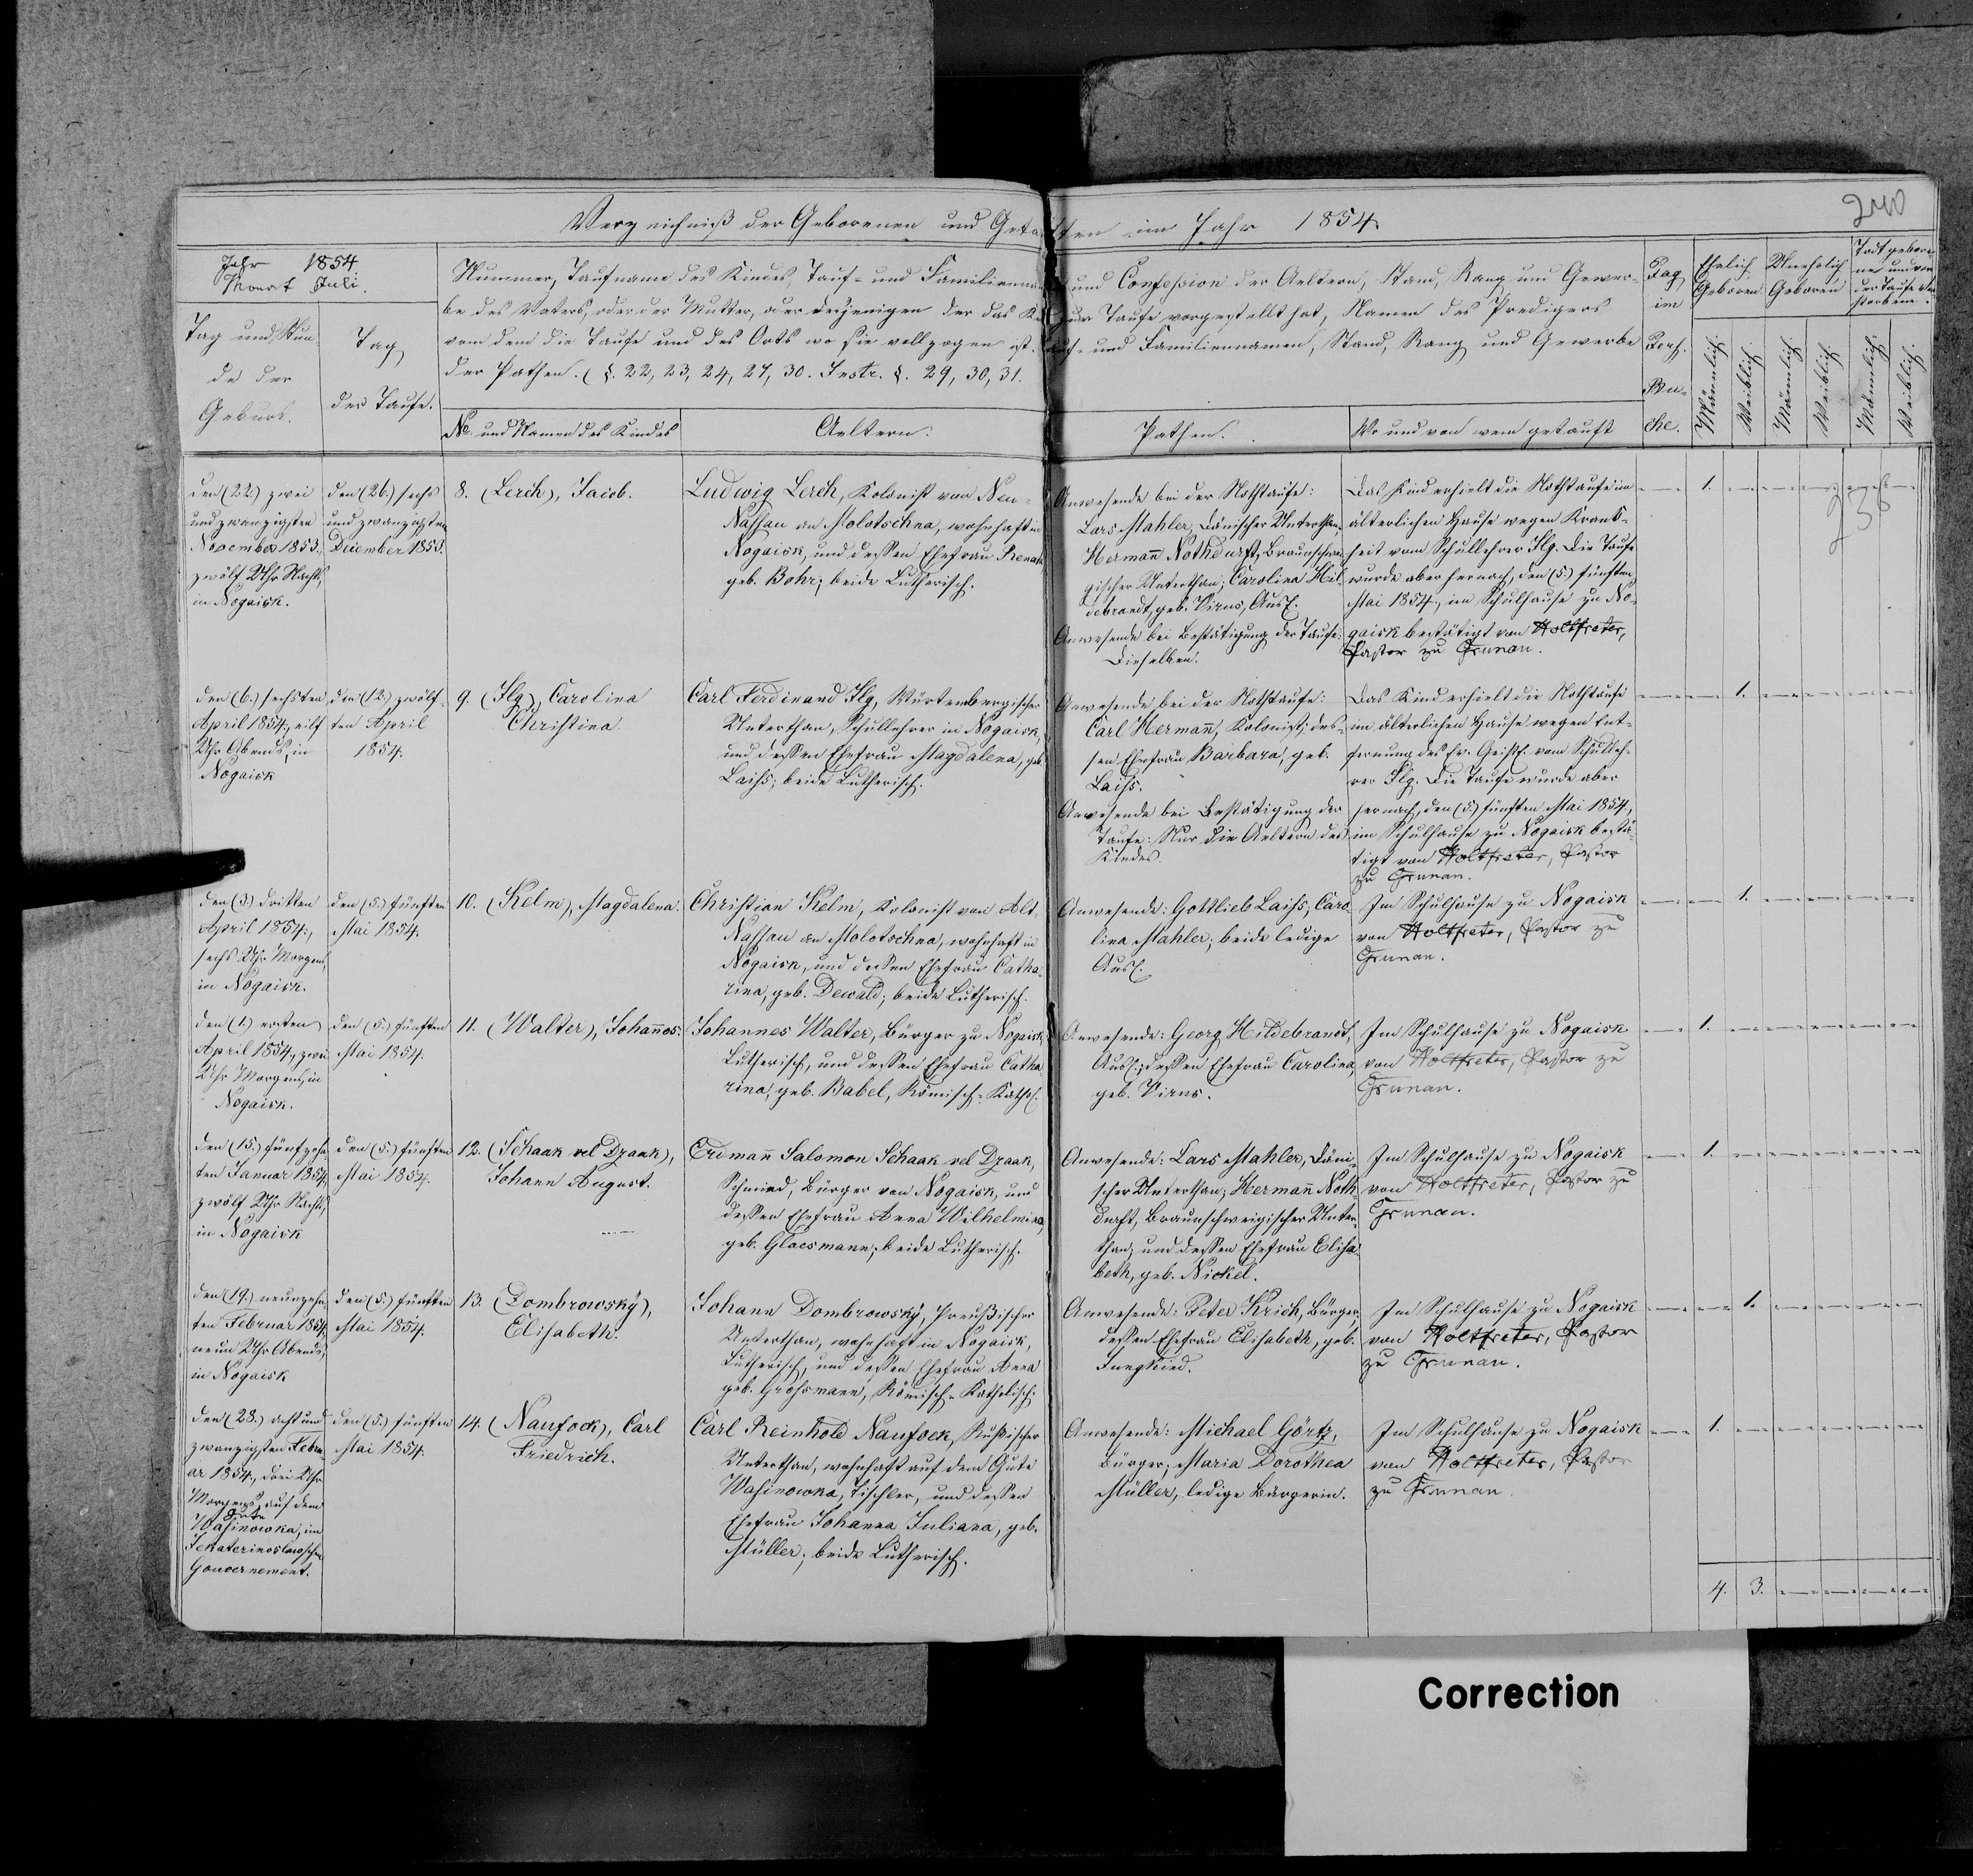 Verzeichniß der Geborenen und Getauften im Jahr 1854.
240
Jahr 1854
Monat Juli.
Tag und Stun-
de der
Geburt.
Tag
der Taufe.
Nummer, Taufname des Kindes, Tauf- und Familienname und Confession der Aeltern, Stand, Rang und Gewer-
be des Vaters, oder der Mutter, oder derjenigen der das Kind zur Taufe vorgestellt hat, Namen des Predigers
von dem die Taufe und des Orts wo sie vollzogen ist. Tauf- und Familiennamen, Stand, Rang und Gewerbe
der Pathen. (§. 22, 23, 24, 27, 30. Instr. §. 29, 30, 31.
No. und Namen des Kindes
Aeltern.
Pathen.
Wo und von wem getauft
Pag
im
Pers.
Bu-
che.
Ehelich
Geboren
Unehelich
Geboren
Todt gebore-
ne und vor
der Taufe ver-
storbene.
Männlich.
Weiblich.
Männlich.
Weiblich.
Männlich.
Weiblich.
den (22.) zwei
und zwanzigsten
November 1853.,
zwölf Uhr Nachts,
in Nogaisk.
den (26.) sechs
und zwanzigsten
December 1853.
8. (Lerch), Jacob.
Ludwig Lerch, Kolonist von Neu-
Nassau an Molotschna, wohnhaft in
Nogaisk, und dessen Ehefrau Renata
geb. Bohr; beide Lutherisch.
Anwesende bei der Nothtaufe:
Lars Mahler, Dänischer Unterthan;
Hermañ Nothdurft, Braunschwei-
gischer Unterthan; Carolina Hil-
debrandt, geb. Virus, Ausl.
Anwesende bei Bestätigung der Taufe:
Dieselben.
Das Kind erhielt die Nothtaufe im
älterlichen Hause wegen Krank-
heit vom Schullehrer Ilg. Die Taufe
wurde aber hernach, den (5.) fünften
Mai 1854., im Schulhause zu No-
gaisk bestätigt von Holtfreter,
Pastor zu Grunau.
1.
236
den (6.) sechsten
April 1854., eilf
Uhr Abends, in
Nogaisk
den (12.) zwölf-
ten April
1854.
9. (Ilg), Carolina
Christina.
Carl Ferdinand Ilg, Würtembergischer
Unterthan, Schullehrer in Nogaisk,
und dessen Ehefrau Magdalena, geb.
Laihs; beide Lutherisch.
Anwesende bei der Nothtaufe:
Carl Hermañ, Kolonist; des-
sen Ehefrau Barbara, geb.
Laihs.
Anwesende bei Bestätigung der
Taufe: Nur die Aeltern des
Kindes.
Das Kind erhielt die Nothtaufe
im älterlichen Hause wegen Ent-
fernung des Ev. Geistl. vom Schulleh-
rer Ilg. Die Taufe wurde aber
hernach, den (5.) fünften Mai 1854.,
im Schulhause zu Nogaisk bestä-
tigt von Holtfreter, Pastor
zu Grunau.
1.
den (3.) dritten
April 1854.,
sechs Uhr Morgens,
in Nogaisk.
den (5.) fünften
Mai 1854.
10. (Kelm), Magdalena.
Christian Kelm, Kolonist von Alt-
Nassau an Molotschna, wohnhaft in
Nogaisk, und dessen Ehefrau Catha-
rina, geb. Dewald; beide Lutherisch.
Anwesende: Gottlieb Laihs; Caro-
lina Mahler; beide ledige
Ausl.
Im Schulhause zu Nogaisk
von Holtfreter, Pastor zu
Grunau.
1.
den (1.) ersten
April 1854., zwei
Uhr Morgens, in
Nogaisk.
den (5.) fünften
Mai 1854.
11. (Walter), Johañes.
Johannes Walter, Bürger zu Nogaisk,
Lutherisch, und dessen Ehefrau Catha-
rina, geb. Babel, Römisch-Kathol.
Anwesende: Georg Hildebrandt,
Ausl.; dessen Ehefrau Carolina,
geb. Virus.
Im Schulhause zu Nogaisk
von Holtfreter, Pastor zu
Grunau.
1.
den (15.) fünfzehn-
ten Januar 1854.,
zwölf Uhr Nachts,
in Nogaisk
den (5.) fünften
Mai 1854.
12. (Schaak vel Dzaak),
Johann August.
Erdmañ Salomon Schaak vel Dzaak,
Schmied, Bürger von Nogaisk, und
dessen Ehefrau Anna Wilhelmina,
geb. Glaesmann; beide Lutherisch.
Anwesende: Lars Mahler, Däni-
scher Unterthan; Hermañ Noth-
durft, Braunschweigischer Unter-
than, und dessen Ehefrau Elisa-
beth, geb. Nickel.
Im Schulhause zu Nogaisk
von Holtfreter, Pastor zu
Grunau.
1.
den (19.) neunzehn-
ten Februar 1854.,
neun Uhr Abends,
in Nogaisk
den (5.) fünften
Mai 1854.
13. (Dombrowsky),
Elisabeth.
Johann Dombrowsky, Preußischer
Unterthan, wohnhaft in Nogaisk,
Lutherisch, und dessen Ehefrau Anna
geb. Grohsmann, Römisch-Katholisch.
Anwesende: Peter Krich, Bürger;
dessen Ehefrau Elisabeth, geb.
Jungkied.
Im Schulhause zu Nogaisk
von Holtfreter, Pastor
zu Grunau.
1.
den (28.) acht und
zwanzigsten Febru-
ar 1854., drei Uhr
Morgens, auf dem
Gute
Wasinowka, im
Jekaterinoslawschen
Gouvernement.
den (5.) fünften
Mai 1854.
14. (Naufock), Carl
Friedrich.
Carl Reinhold Naufock, Russischer
Unterthan, wohnhaft auf dem Gute
Wasinowka, Tischler, und dessen
Ehefrau Johanna Juliana, geb.
Müller; beide Lutherisch.
Anwesende: Michael Görtz,
Bürger; Maria Dorothea
Müller, ledige Bürgerin.
Im Schulhause zu Nogaisk
von Holtfreter, Pastor
zu Grunau.
1.
4. 3.
Correction